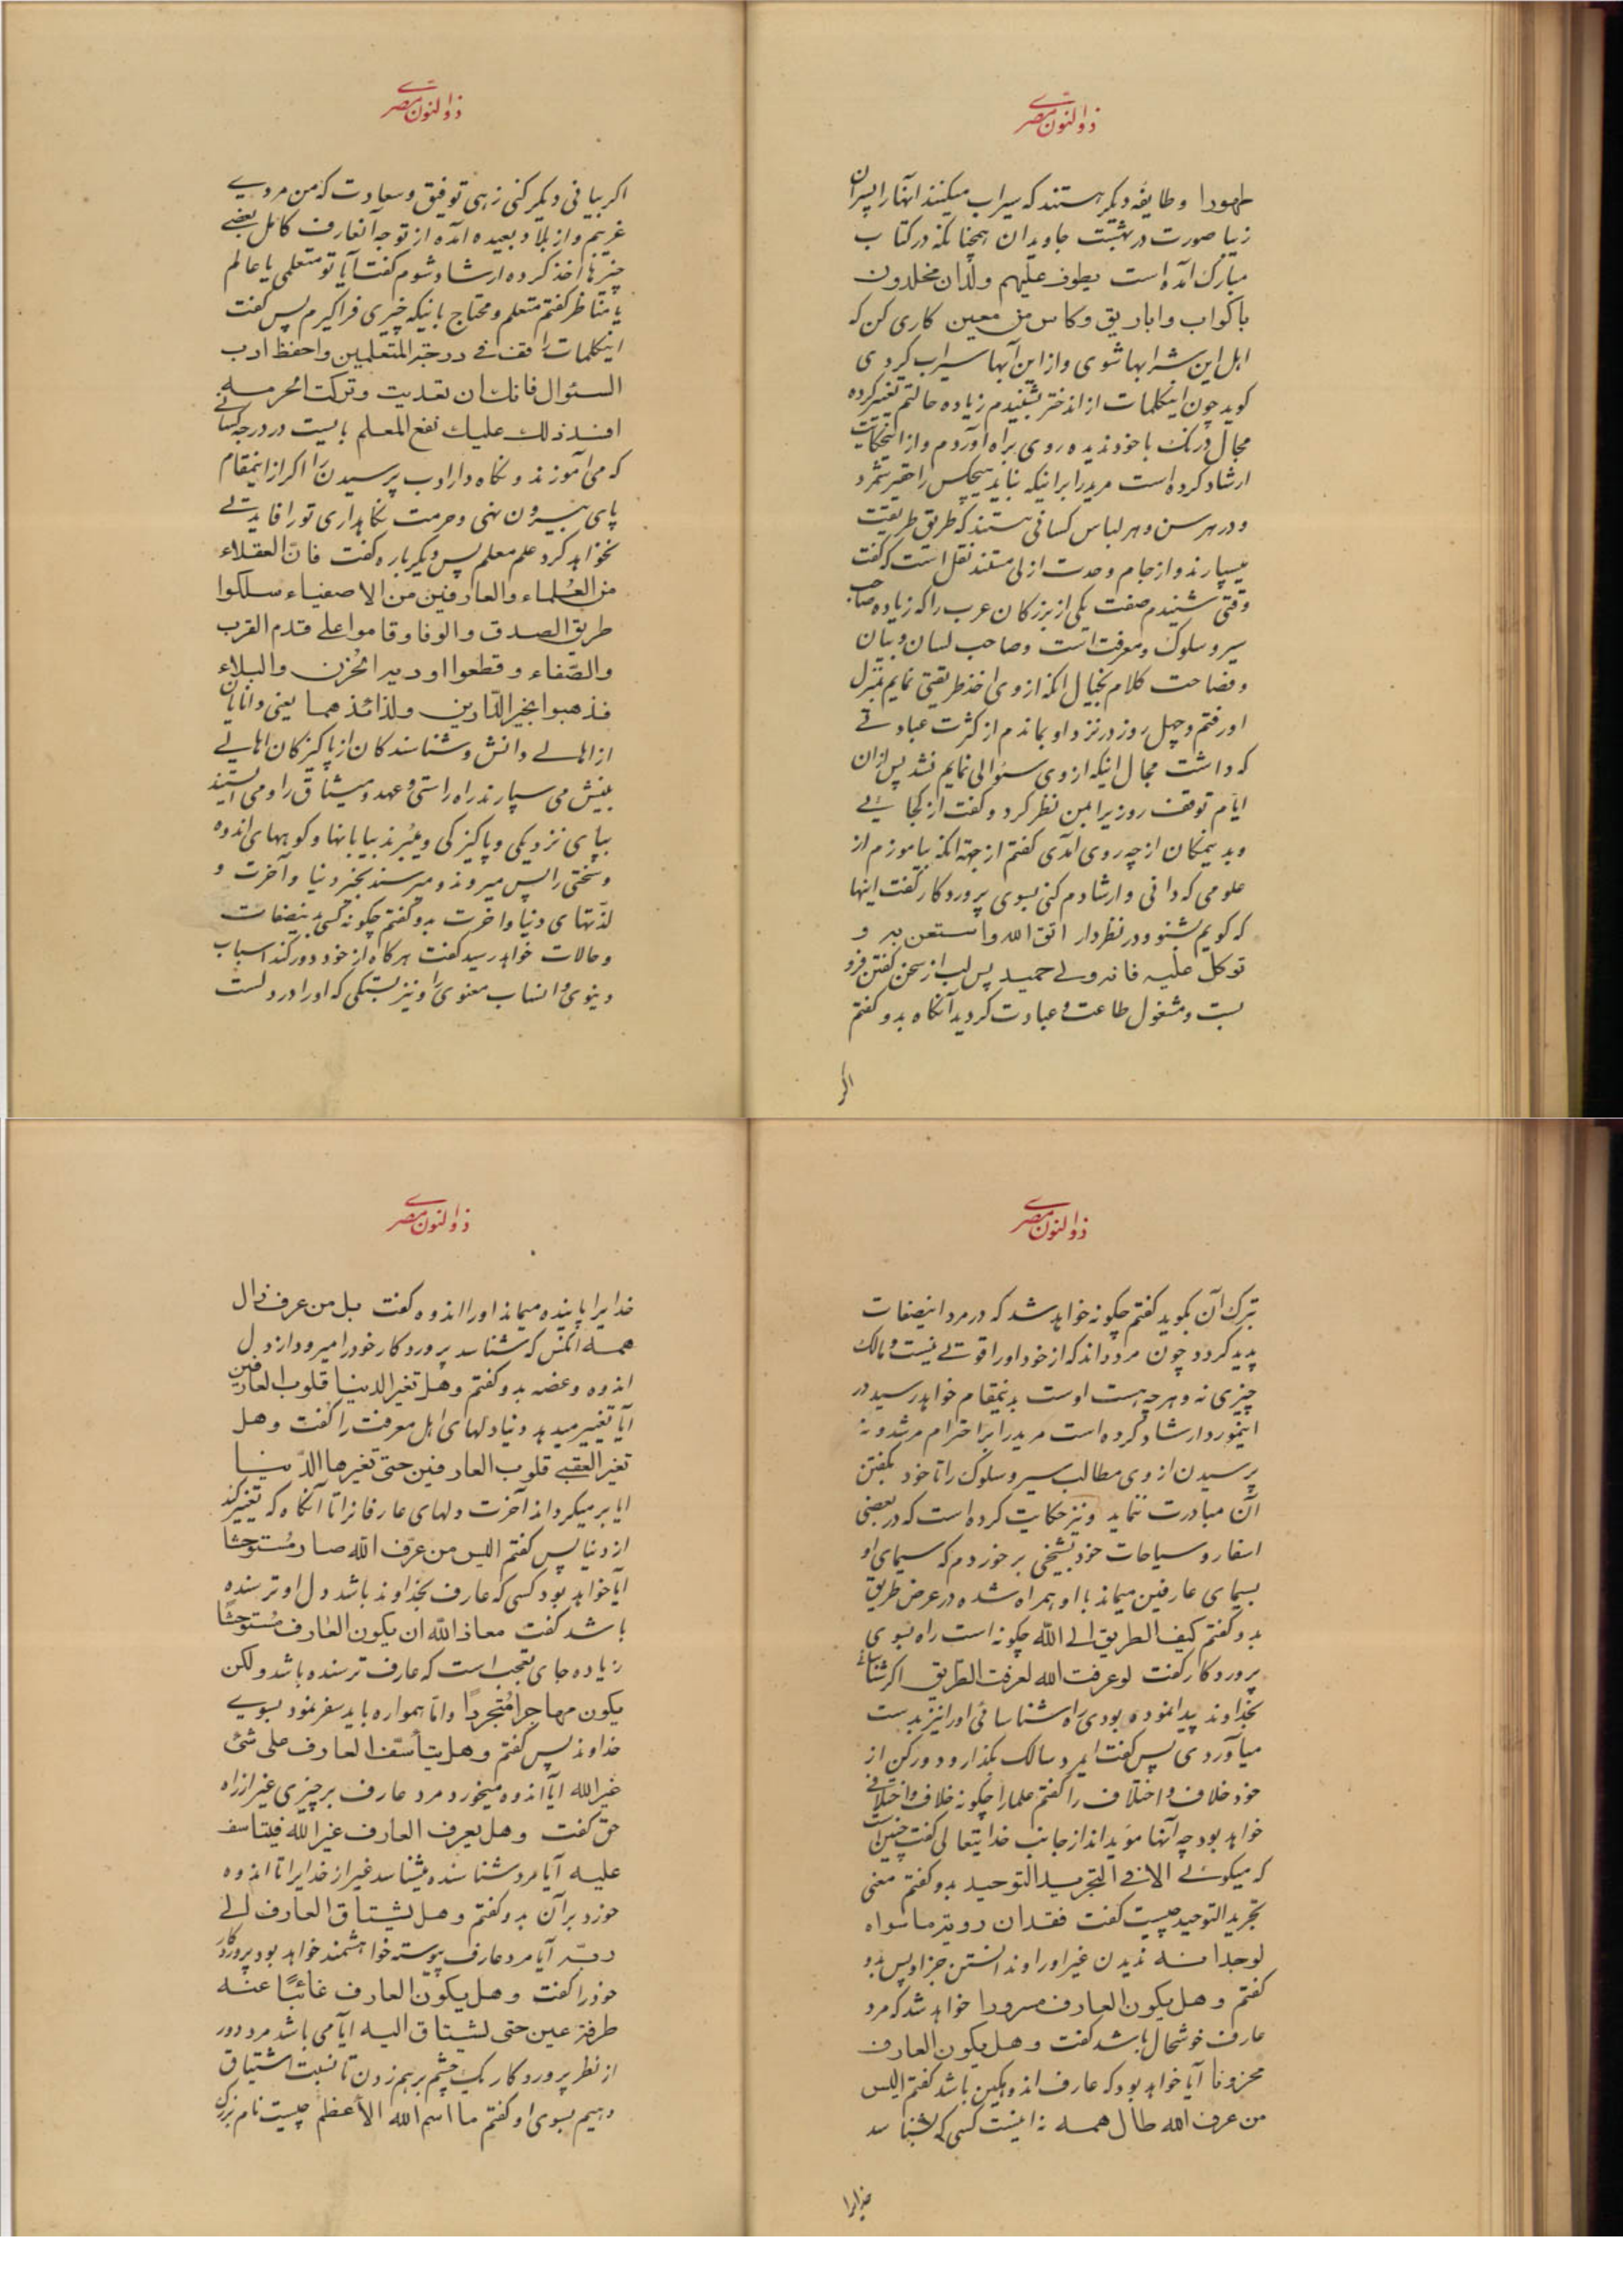 ذوالنون مصری
طهورا و طایفه دیگر هستند که سیراب میکنند آنها را پسران
زیبا صورت در بهشت جاویدان همچنانکه در کتاب
مبارک آمده است یطوف علیهم ولدان مخلدون
باکواب و اباریق و کاس من معین کاری کن که
اهل این شرابها شوی و از این آبها سیراب گردی
گوید چون اینکلمات از اندختر بشنیدم زیاده حالتم تغییر کرده
مجال درنگ با خود ندیده روی براه آوردم و از اینحکایت
ارشاد کرده است مرید را برانیکه نباید هیچکس را حقیر شمرد
و در هر سن و هر لباس کسانی هستند که طریق طریقت
میسپارند و از جام وحدت ازلی مستند نقل است که گفت
وقتی شنیدم صفت یکی از بزرگان عرب را که زیاده صاحب
سیر و سلوک و معرفت است و صاحب لسان و بیان
و فصاحت کلام بخیال انکه از وی اخذ طریقتی نمایم بمنزل
او رفتم و چهل روز در نزد او بماندم از کثرت عبادتی
که داشت مجال اینکه از وی سئوالی نمایم نشد پس از ان
ایام توقف روزی بر من نظر کرد و گفت از کجائی
و بدینمکان از چه روی آمدی گفتم از جهة انکه بیاموزم از
علومی که دانی و ارشادم کنی بسوی پروردکار گفت اینها
که گویم بشنو و در نظر دار اتق الله و استعن به و
توکل علیه فانه ولی حمید پس لب از سخن گفتن فرو
بست و مشغول طاعت و عبادت گردید آنگاه بدو گفتم
اگر
ذوالنون مصری
اگر بیانی دیگر کنی زهی توفیق و سعادت که من مردی
غریبم و از بلاد بعیده آمده از توجه آنعارف کامل بعضی
چیزها اخذ کرده ارشاد شوم گفت آیا تو متعلمی یا عالم
یا مناظر گفتم متعلم و محتاج بانیکه چیزی فرا گیرم پس گفت
اینکلمات را قف فی درجة المتعلمین و احفظ ادب
السئوال فانک ان تعدیت و ترکت الحرمه
افسد ذلک علیک نفع المعلم بایست در درجه کسانی
که می آموزند و نگاه دار ادب پرسیدن را اگر از اینمقام
پای بیرون نهی و حرمت نگاهداری تو را فایدتی
نخواهد کرد علم معلم پس دیگر باره گفت فان العقلاء
من العلماء و العارفین من الاصفیاء سلکوا
طریق الصدق و الوفا و قاموا علی قدم القرب
والصفاء و قطعوا اودیة الحزن والبلاء
فذهبوا بخیر الدارین و لذائذهما یعنی دانایان
از اهالی دانش و شناسندکان از پاکیزکان اهالی
بینش می سپارند راه راستی و عهد و میثاق را و می ایستند
بپای نزدیکی و پاکیزگی و میبرند بیابانها و کوههای اندوه
و سختی را پس میروند و میرسند بخیر دنیا و آخرت و
لذتهای دنیا و اخرت بدو گفتم چگونه کسی بدینصفات
و حالات خواهد رسید گفت هرگاه از خود دور کند اسباب
دنیوی و انساب معنوی را و نیز بستگی که او را در دلست
ذوالنون مصری
ترک آن بگوید گفتم چگونه خواهد شد که در مرد اینصفات
پدید گردد چون مرد داند که از خود او را قوتی نیست و مالک
چیزی نه و هرچه هست اوست بدینمقام خواهد رسید در
اینمورد ارشاد کرده است مرید را بر احترام مرشد و نه
پرسیدن از وی مطالب سیر و سلوک را تا خود بگفتن
آن مبادرت نماید و نیز حکایت کرده است که در بعضی
اسفار و سیاحات خود بشخصی برخوردم که سیمای او
بسیمای عارفین میماند با او همراه شده در عرض طریق
بدو گفتم کیف الطریق الی الله چگونه است راه بسوی
پروردکار گفت لو عرفت الله لعرفت الطریق اگر شناسائی
بخداوند پیدا نموده بودی راه شناسائی او را نیز بدست
میآوردی پس گفت ایمرد سالک بگذار و دور کن از
خود خلاف و اختلاف را گفتم علما را چگونه خلاف و اختلافی
خواهد بود چه آنها مؤیدانند از جانب خدایتعالی گفت چنین است
که میگوئی الا فی التجرید التوحید بدو گفتم معنی
تجرید التوحید چیست گفت فقدان رویة ما سواه
لوحدانیته ندیدن غیر او را و ندانستن جز او پس بدو
گفتم و هل یکون العارف مسرورا خواهد شد که مرد
عارف خوشحال باشد گفت و هل یکون العارف
محزونا آیا خواهد بود که عارف اندوهگین باشد گفتم الیس
من عرف الله طال همه نه اینست کسی که بشناسد
خدایرا
ذوالنون مصری
خدایرا پاینده میماند او را اندوه گفت بل من عرف زال
همه انکس که شناسد پروردکار خود را میرود از دل
اندوه و غصه بدو گفتم و هل تغیر الدنیا قلوب العارفین
آیا تغییر میدهد دنیا دلهای اهل معرفت را گفت و هل
تغیر العقبی قلوب العارفین حتی تغیرها الدنیا
ایا برمیگرداند آخرت دلهای عارفانرا تا آنگاه که تغییر کند
از دنیا پس گفتم الیس من عرف الله صار مستوحشا
آیا خواهد بود کسی که عارف بخداوند باشد دل او ترسنده
باشد گفت معاذ الله ان یکون العارف مستوحشا
زیاده جای تعجب است که عارف ترسنده باشد ولکن
یکون مهاجرا متجردا و اما همواره باید سفر نمود بسوی
خداوند پس گفتم و هل یتأسف العارف علی شئ
غیر الله ایا اندوه میخورد مرد عارف بر چیزی غیر از راه
حق گفت و هل یعرف العارف غیر الله فیتاسف
علیه آیا مرد شناسنده میشناسد غیر از خدایرا تا اندوه
خورد بر آن بدو گفتم و هل یشتاق العارف الی
ربه آیا مرد عارف پیوسته خواهشمند خواهد بود پروردکار
خود را گفت و هل یکون العارف غائبا عنه
طرفة عین حتی یشتاق الیه آیا می باشد مرد دور
از نظر پروردکار یک چشم برهم زدن تا نسبت اشتیاق
دهیم بسوی او گفتم ما اسم الله الأعظم چیست نام بزرک